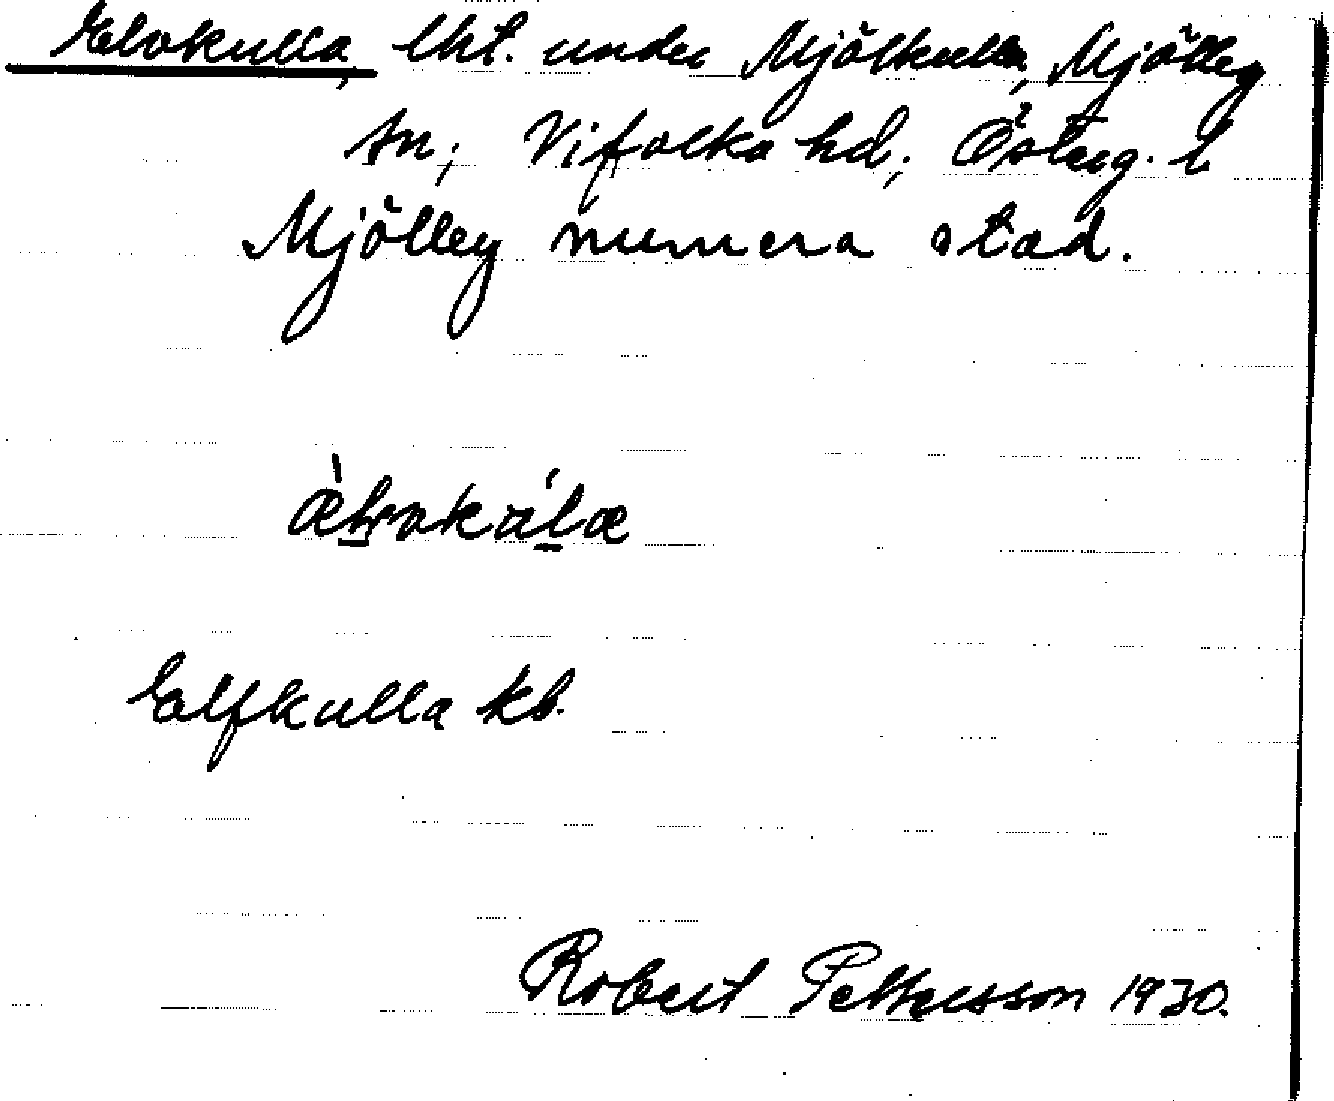 Elvokulla, lht. under Mjölkulla, Mjölby
sn; Vifolka hd; Österg. l
Mjölby numera stad.
Elfkulla kb.
Robert Pettersson 1930.